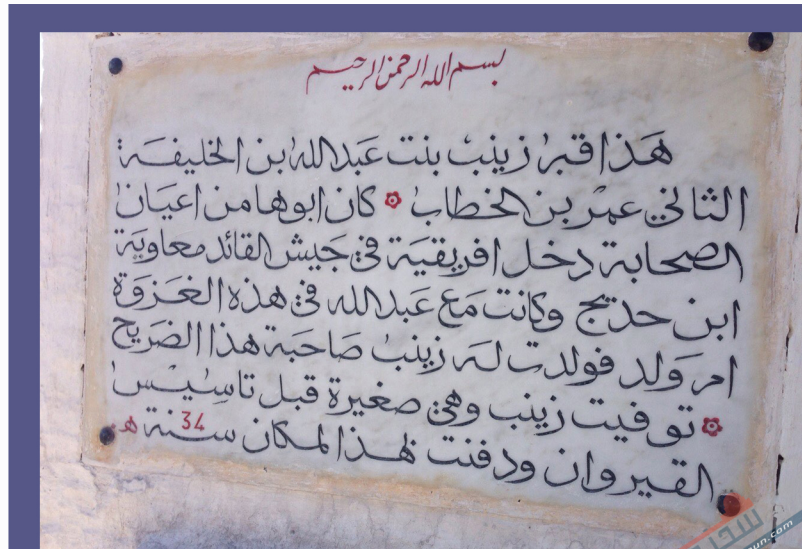 بسم الله الرحمن الرحيم
هذا قبر زينب بنت عبد الله ابن الخليفة
الثاني عمر بن الخطاب كان ابوها من اعيان
الصحابة دخل افريقية في جيش القائد معاوية
ابن حديج وكانت مع عبد الله في هذه الغزوة
ام ولد فولدت له زينب صاحبة هذا الضريح
توفيت زينب وهي صغيرة قبل تاسيس
القيروان ودفنت بهذا المكان سنة 34 هـ